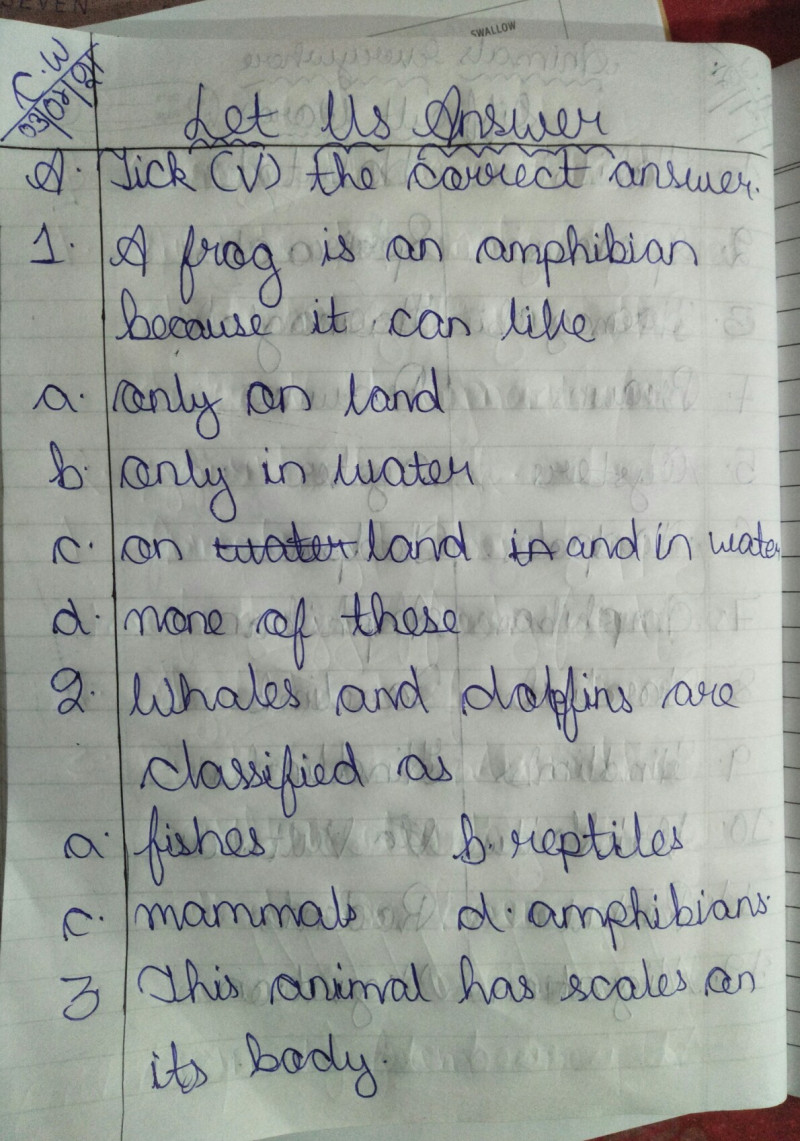 SEVEN
SWALLOW
C.W
Let Us Answer
A. Tick (√) the correct answer.
1. A frog is an amphibian
because it can like
a. only on land
b. only in water
c. on water land in and in water
d. none of these
2. Whales and dolfins are
classified as
a. fishes b. reptiles
c. mammals d. amphibians.
3 This animal has scales on
its body.